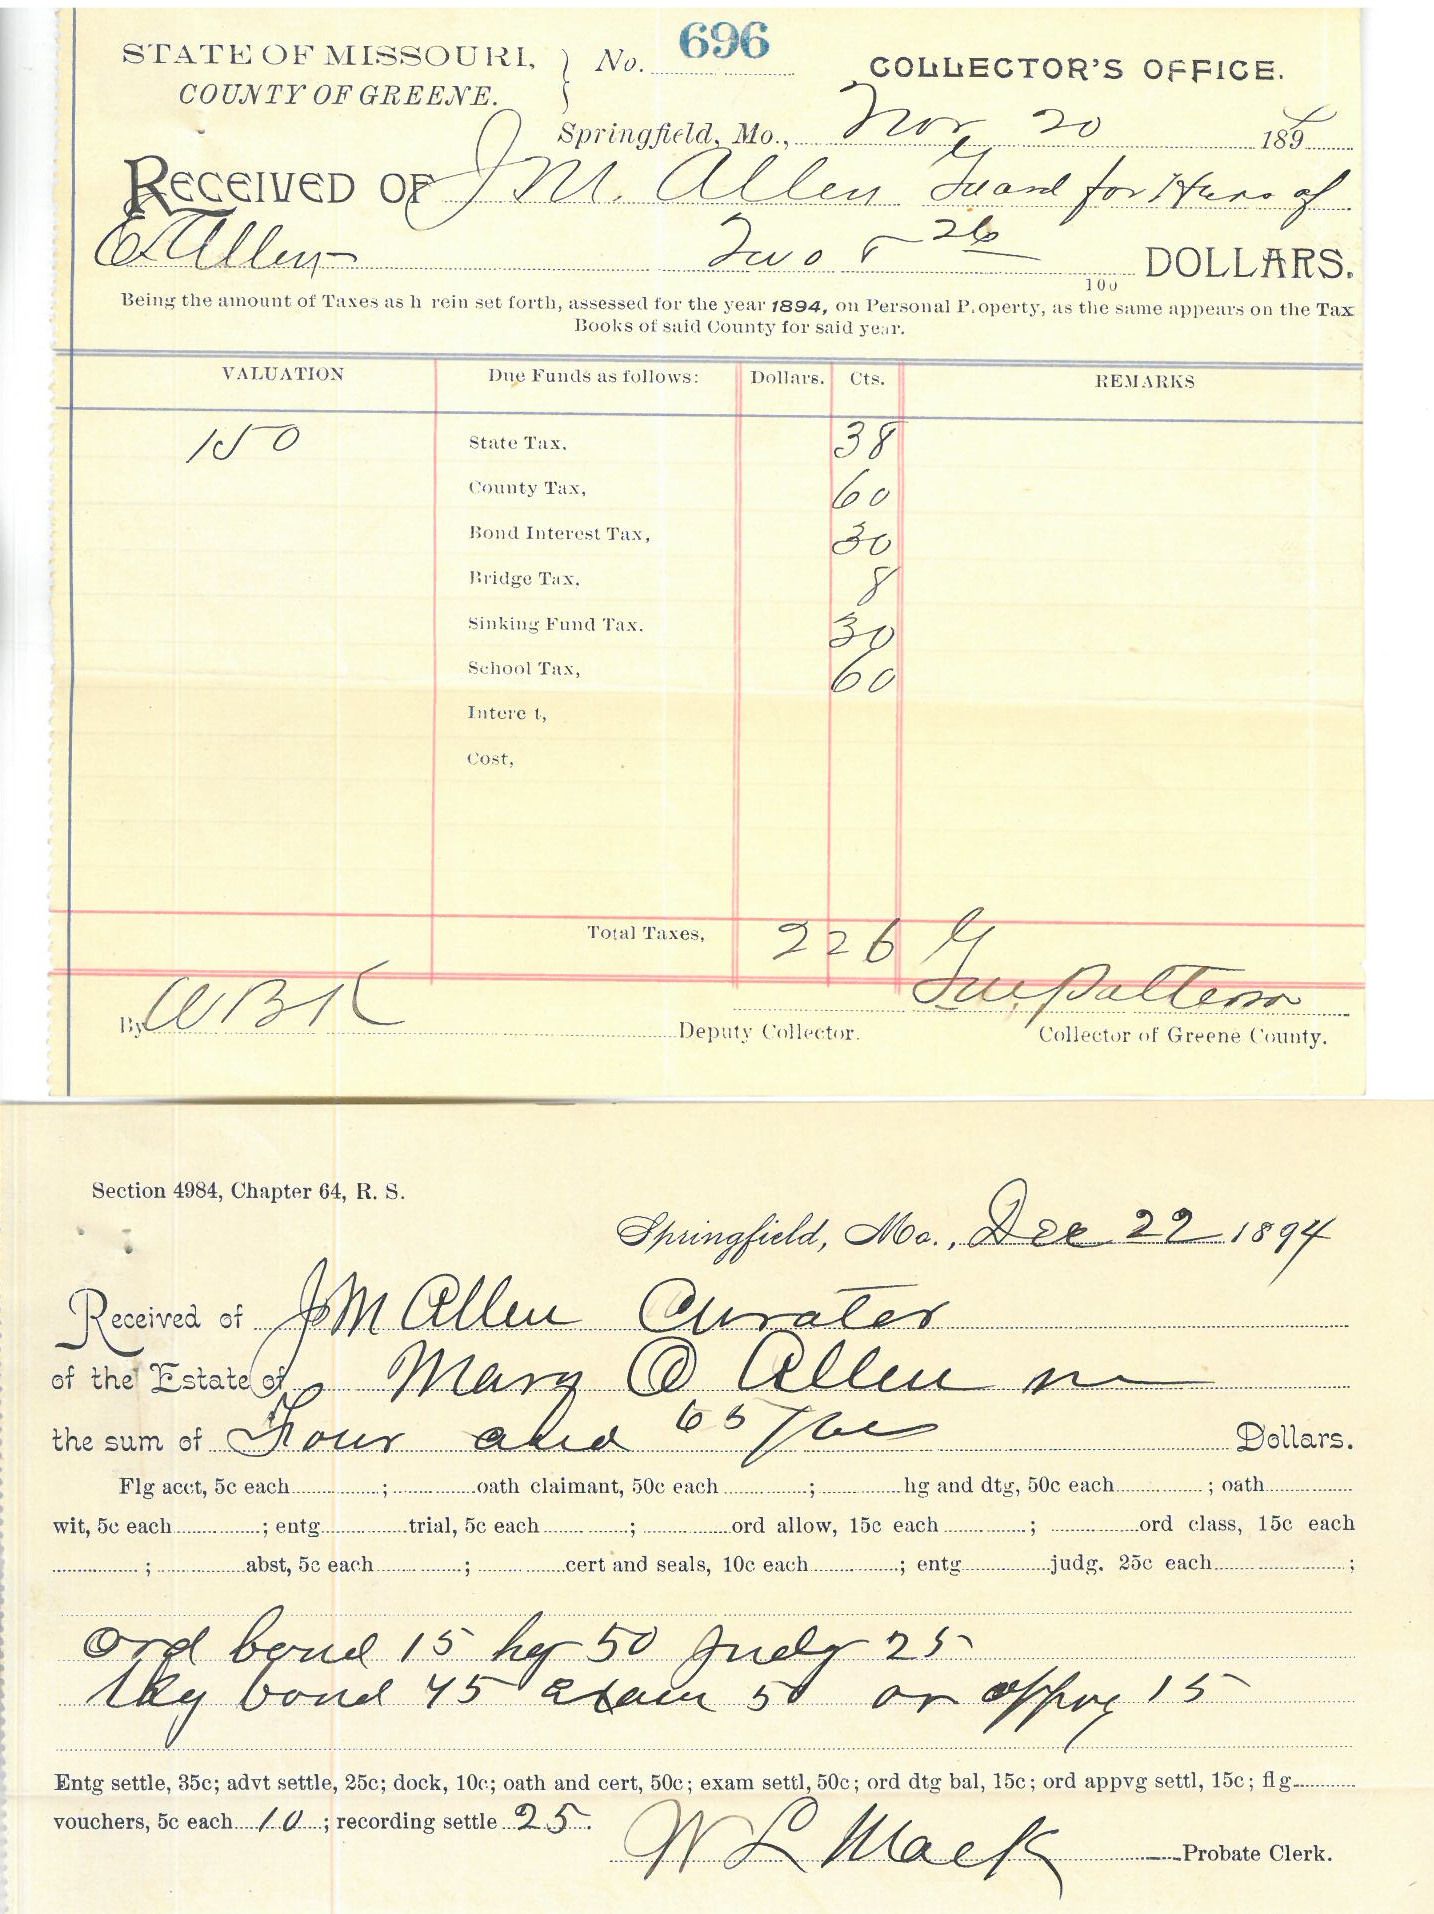 STATE OF MISSOURI, No. 696 COLLECTOR'S OFFICE.
COUNTY OF GREENE.
Springfield, Mo., Nov 20 1894
RECEIVED OF J M. Allen Guard for Heirs of
E Allen Two & 26/100 DOLLARS.
Being the amount of Taxes as h rein set forth, assessed for the year 1894, on Personal Property, as the same appears on the Tax
Books of said County for said year.
VALUATION Due Funds as follows: Dollars. Cts. REMARKS
150 State Tax, 38
County Tax, 60
Bond Interest Tax, 30
Bridge Tax, 8
Sinking Fund Tax. 30
School Tax, 60
Intere t,
Cost,
Total Taxes, 2 26
By W B K Deputy Collector. Patterson
Collector of Greene County.
Section 4984, Chapter 64, R. S.
Springfield, Mo., Dec 22 1894
Received of J M Allen Curator
of the Estate of Mary O Allen
the sum of Four and 65/100 Dollars.
Flg acct, 5c each ; oath claimant, 50c each ; hg and dtg, 50c each ; oath
wit, 5c each ; entg trial, 5c each ; ord allow, 15c each ; ord class, 15c each
; abst, 5c each ; cert and seals, 10c each ; entg judg. 25c each ;
ord bond 15 hg 50 judg 25
bond 45 exam 50 or appvg 15
Entg settle, 35c; advt settle, 25c; dock, 10c; oath and cert, 50c; exam settl, 50c; ord dtg bal, 15c; ord appvg settl, 15c; flg
vouchers, 5c each 10 ; recording settle 25.
W L Mack Probate Clerk.